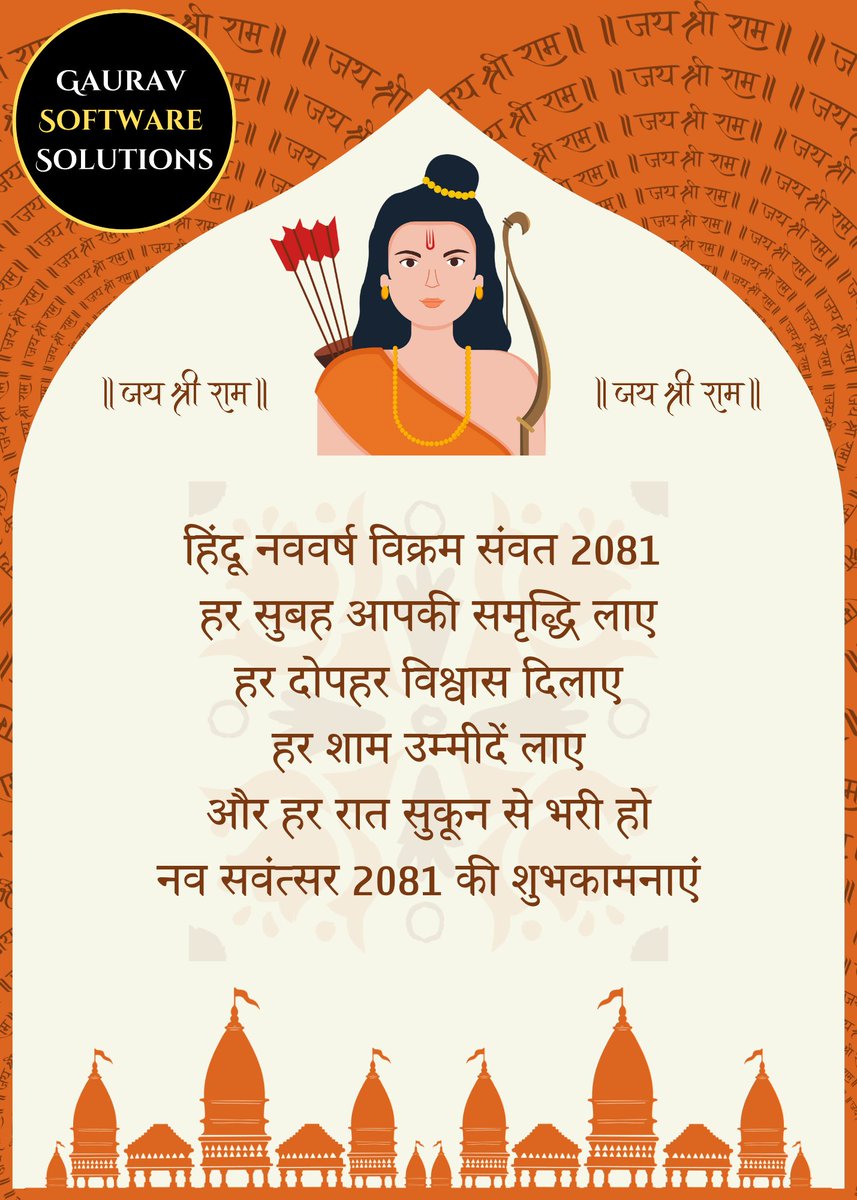 GAURAV
SOFTWARE
SOLUTIONS
॥ जय श्री राम ॥
॥ जय श्री राम ॥
हिंदू नववर्ष विक्रम संवत 2081
हर सुबह आपकी समृद्धि लाए
हर दोपहर विश्वास दिलाए
हर शाम उम्मीदें लाए
और हर रात सुकून से भरी हो
नव सवंत्सर 2081 की शुभकामनाएं